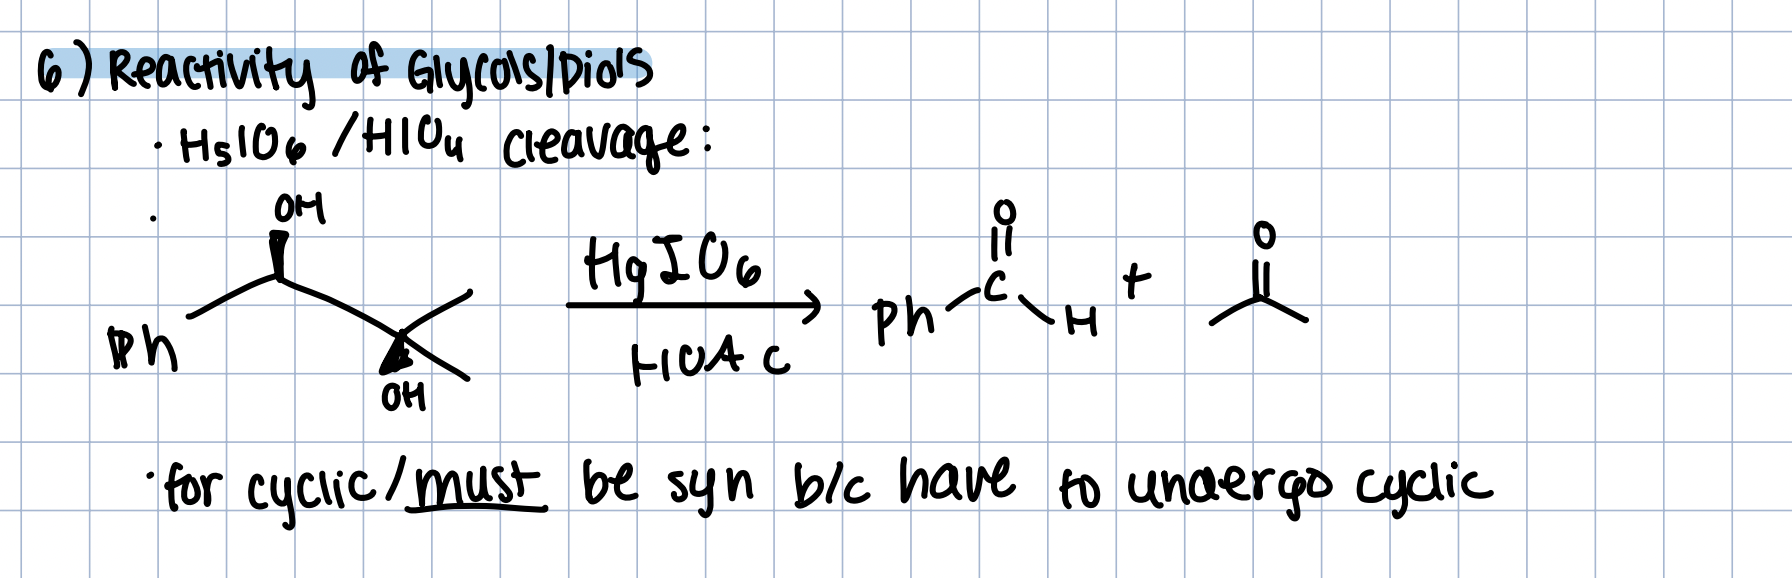 6) Reactivity of Glycols/Diols
· H5IO6 /HIO4 cleavage:
·
OH
Ph
OH
HgIO6
HOAc
O
Ph C H
+
O
· for cyclic/must be syn b/c have to undergo cyclic